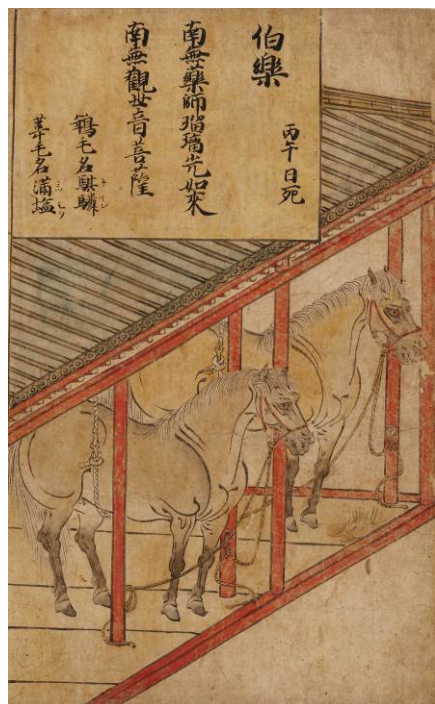 伯樂
丙午日死
南無藥師瑠璃光如來
南無觀世音菩薩
鴾毛名騏驎
葦毛名滿塩